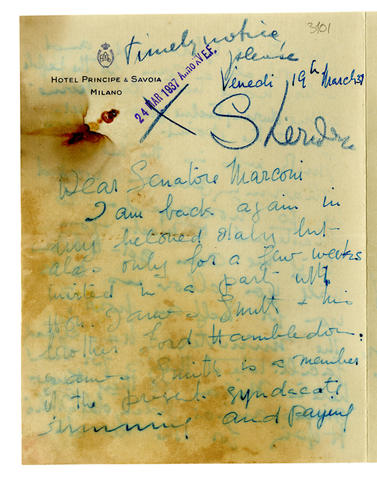 3101
Timely notice
please
HOTEL PRINCIPE & SAVOIA
MILANO
24 MAR 1937 Anno XV E.F.
Venedi 19th March 37
Dear Senatore Marconi
I am back again in
my beloved Italy but
alas only for a few weeks
invited in a party with
Hon. James Smith & his
brother Lord Hambledon.
James Smith is a member
of the present syndacate
running and paying